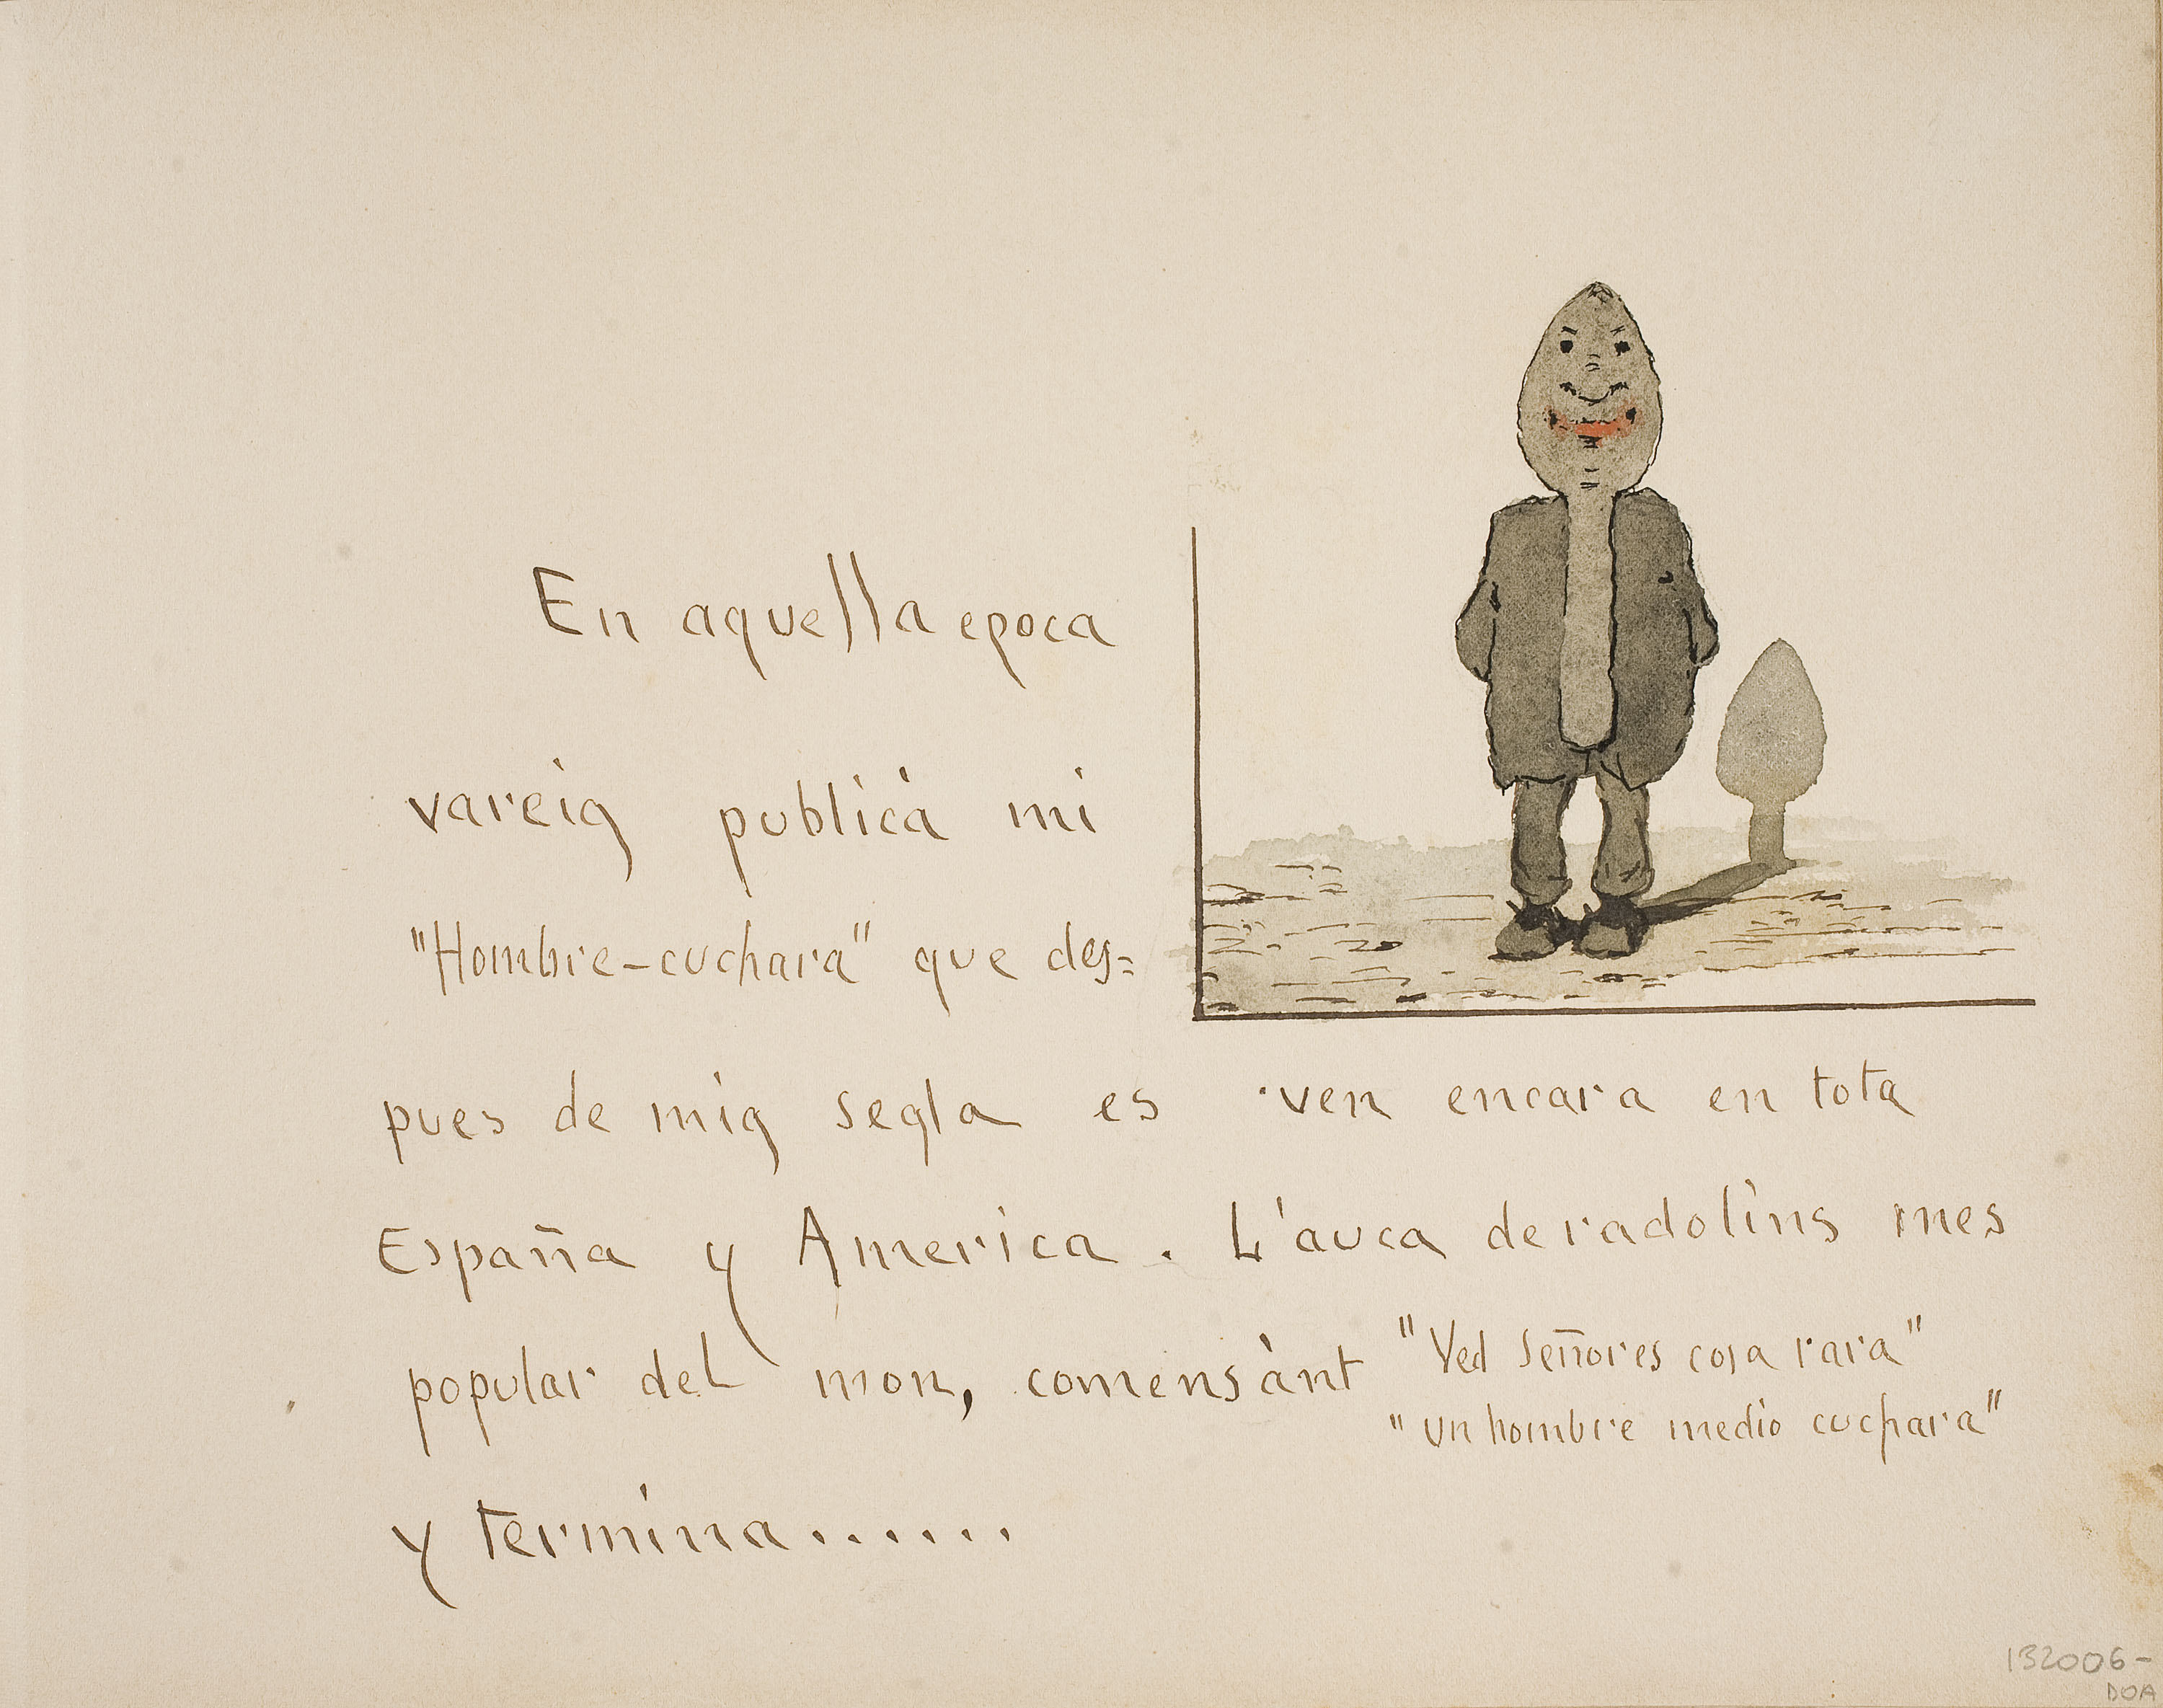 En aquella epoca
vareig publicà mi
"Hombre-cuchara" que des=
pues de mig segla es ven encara en tota
España y America. L'auca de radolins mes
popular del mon, comensànt "Ved Señores cosa rara"
"un hombre medio cuchara"
y termina......
132006-
DOA